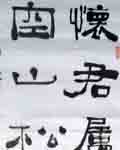 懷君属
空山松